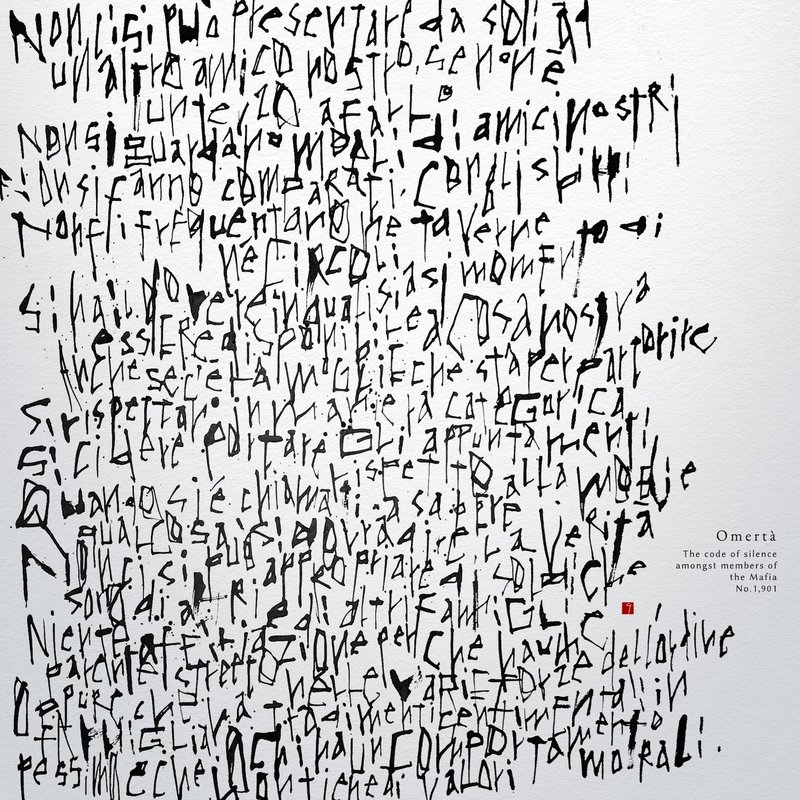 Non ci si può presentare da soli ad
un altro amico nostro, se non è
un terzo a farlo
Non si guardano mogli di amici nostri
Non si fanno comparati con gli sbirri
Non si frequentano né taverne
né circoli
Si ha il dovere in qualsiasi momento di
essere disponibile a cosa nostra
Anche se c'è la moglie che sta per partorire
Si rispettano in maniera categorica
gli appuntamenti
portare rispetto alla moglie
Quando si è chiamati a sapere
qualcosa si dovrà dire la verità
Non si può appropriare di soldi che
sono di altri e di altri famigli
Niente affiliazione per che ha un dell'ordine
parente stretto nelle varie forze
Oppure che ha tradimenti sentimentali in
famiglia O chi ha un comportamento
pessimo e che non tiene di valori morali.
Omertà
The code of silence
amongst members of
the Mafia
No.1,901